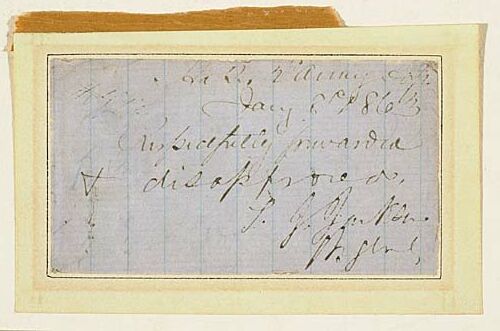 Hd Qr 2d Army Corps
Jany 6th 1863
Respectfully forwarded
disapproved.
T. J. Jackson
Lt. Genl.